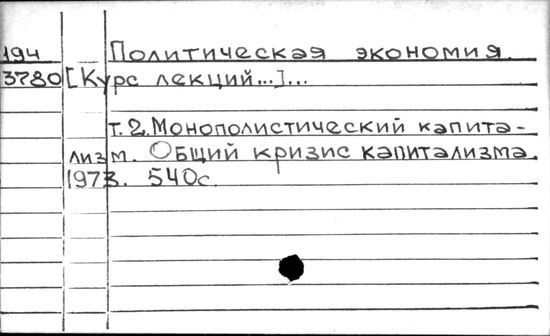 194 Политическая экономия.
3780 [Курс лекций...]...
т. 2. Монополистический капита-
лизм. Общий кризис капитализма.
1973. 540с.